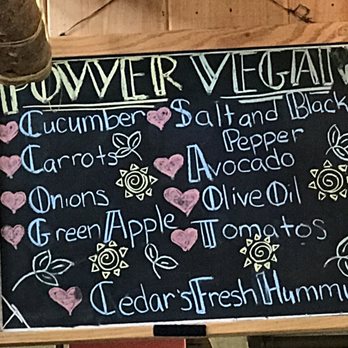 POWER VEGAN
Cucumber
Salt and Black
Pepper
Carrots
Avocado
Onions
Olive Oil
Green Apple
Tomatos
Cedar's Fresh Hummu